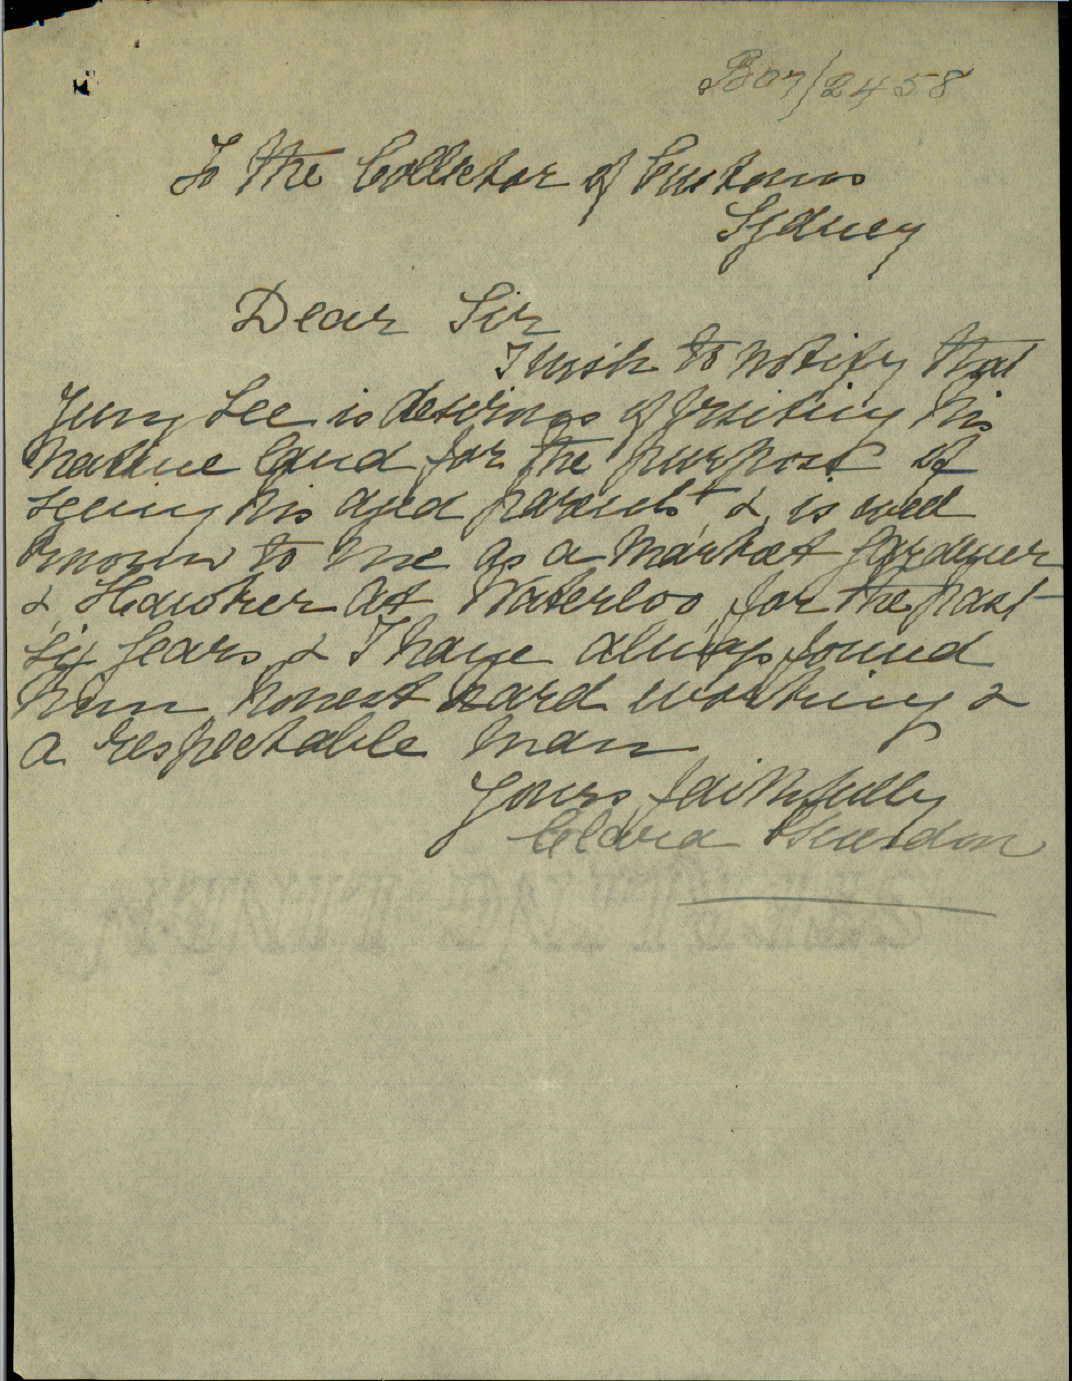 B07/2458
To the Collector of Customs
Sydney
Dear Sir
I wish to notify that
Jung Lee is desirous of visiting his
native land for the purpose of
seeing his aged parents & is well
known to me as a market gardener
& Hawker at Waterloo for the past
six years & I have always found
him honest hard working &
a respectable man
Yours faithfully
Clara